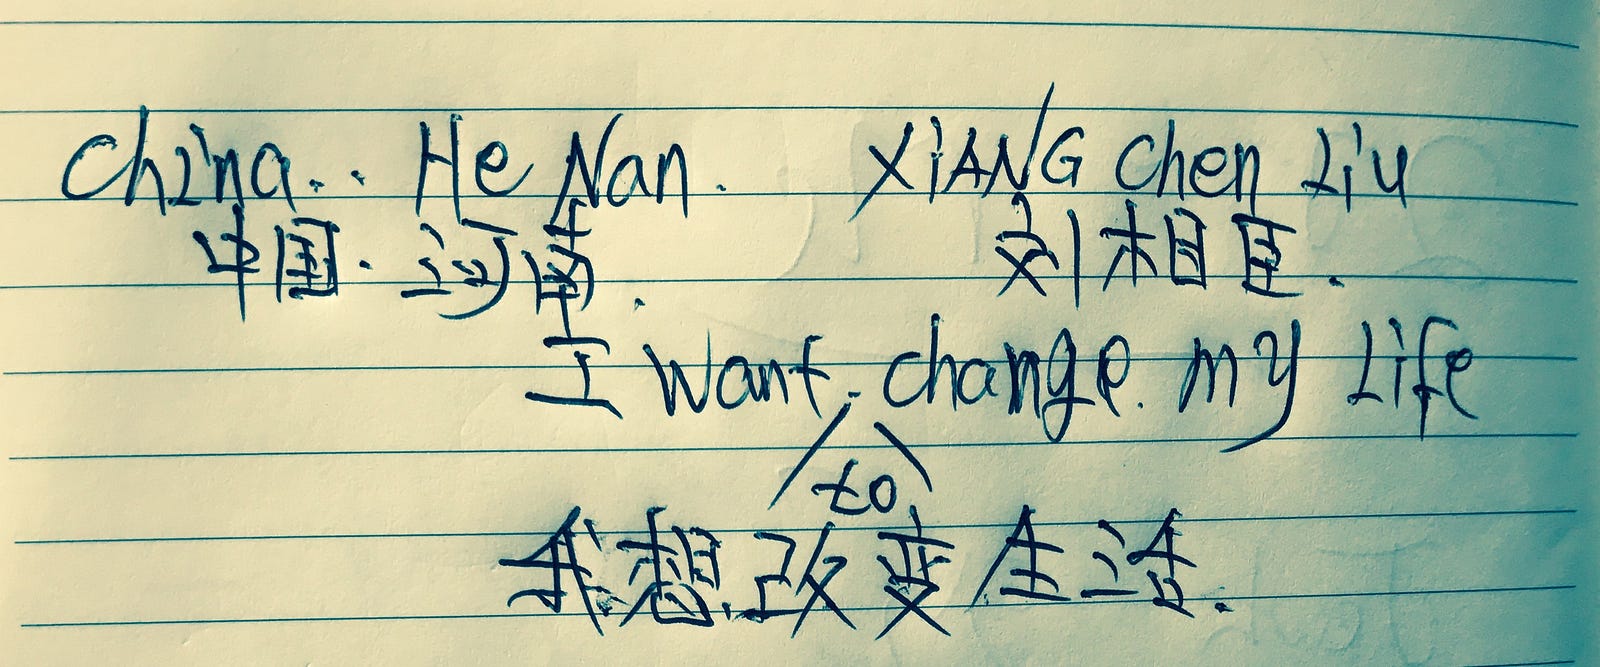 China.. He Nan. XiANG Chen Liu
中国.河南. 刘相臣.
I want change. my Life
to
我想改变生活.